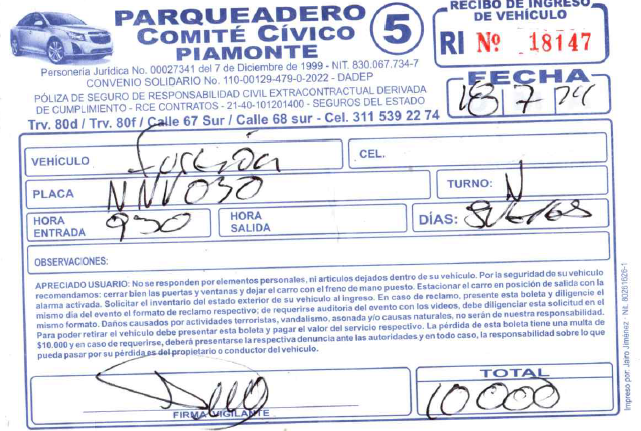 PARQUEADERO
COMITÉ CÍVICO
PIAMONTE
5
RECIBO DE INGRESO
DE VEHÍCULO
RI Nº 18147
Personería Jurídica No. 00027341 del 7 de Diciembre de 1999 - NIT. 830.067.734-7
CONVENIO SOLIDARIO No. 110-00129-479-0-2022 - DADEP
PÓLIZA DE SEGUROS DE RESPONSABILIDAD CIVIL EXTRACONTRACTUAL DERIVADA
DE CUMPLIMIENTO - RCE CONTRATOS - 21-40-101201400 - SEGUROS DEL ESTADO
Trv. 80d / Trv. 80f / Calle 67 Sur / Calle 68 sur - Cel. 311 539 22 74
FECHA
18 7 24
VEHÍCULO
CEL.
PLACA NNV030
TURNO: N
HORA ENTRADA 930
HORA SALIDA
DÍAS:
OBSERVACIONES:
APRECIADO USUARIO: No se responden por elementos personales, ni artículos dejados dentro de su vehículo. Por la seguridad de su vehículo
recomendamos: cerrar bien las puertas y ventanas y dejar el carro con el freno de mano puesto. Estacionar el carro en posición de salida con la
alarma activada. Solicitar el inventario del estado exterior de su vehículo al ingreso. En caso de reclamo, presente esta boleta y diligencie el
mismo día del evento el formato de reclamo respectivo; de requerirse auditoría del evento con los videos, debe diligenciar esta solicitud en el
mismo formato. Daños causados por actividades terroristas, vandalismo, asonada y/o causas naturales, no serán de nuestra responsabilidad.
Para poder retirar el vehículo debe presentar esta boleta y pagar el valor del servicio respectivo. La pérdida de esta boleta tiene una multa de
$10.000 y en caso de requerirse, deberá presentarse la respectiva denuncia ante las autoridades y en todo caso, la responsabilidad sobre lo que
pueda pasar por su pérdida es del propietario o conductor del vehículo.
FIRMA VIGILANTE
TOTAL
10000
Impreso por: Jairo Jiménez - Nit. 80261626-1